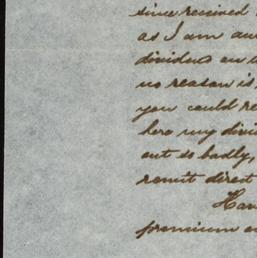 since received
as I am
dividend on
no reason is
you could
here my
out so badly,
remit direct
premium